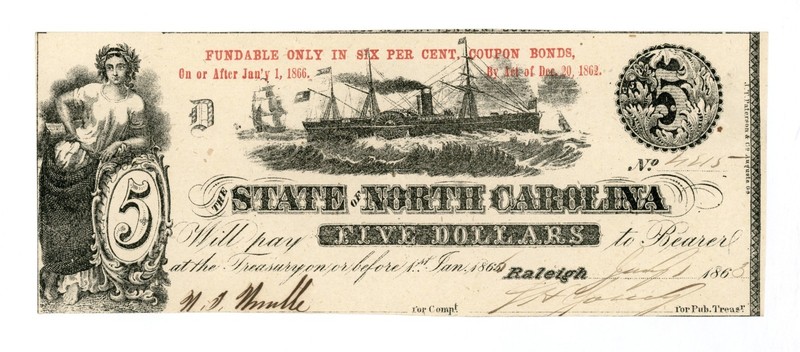 FUNDABLE ONLY IN SIX PER CENT, COUPON BONDS,
On or After Jan'y 1, 1866. By Act of Dec. 20, 1862.
D
5
5
No 4215
THE STATE OF NORTH CAROLINA
Will pay FIVE DOLLARS to Bearer
at the Treasury on, or before 1st Jan. 1866 Raleigh Jany 1 1863
for Compt. for Pub. Treasr.